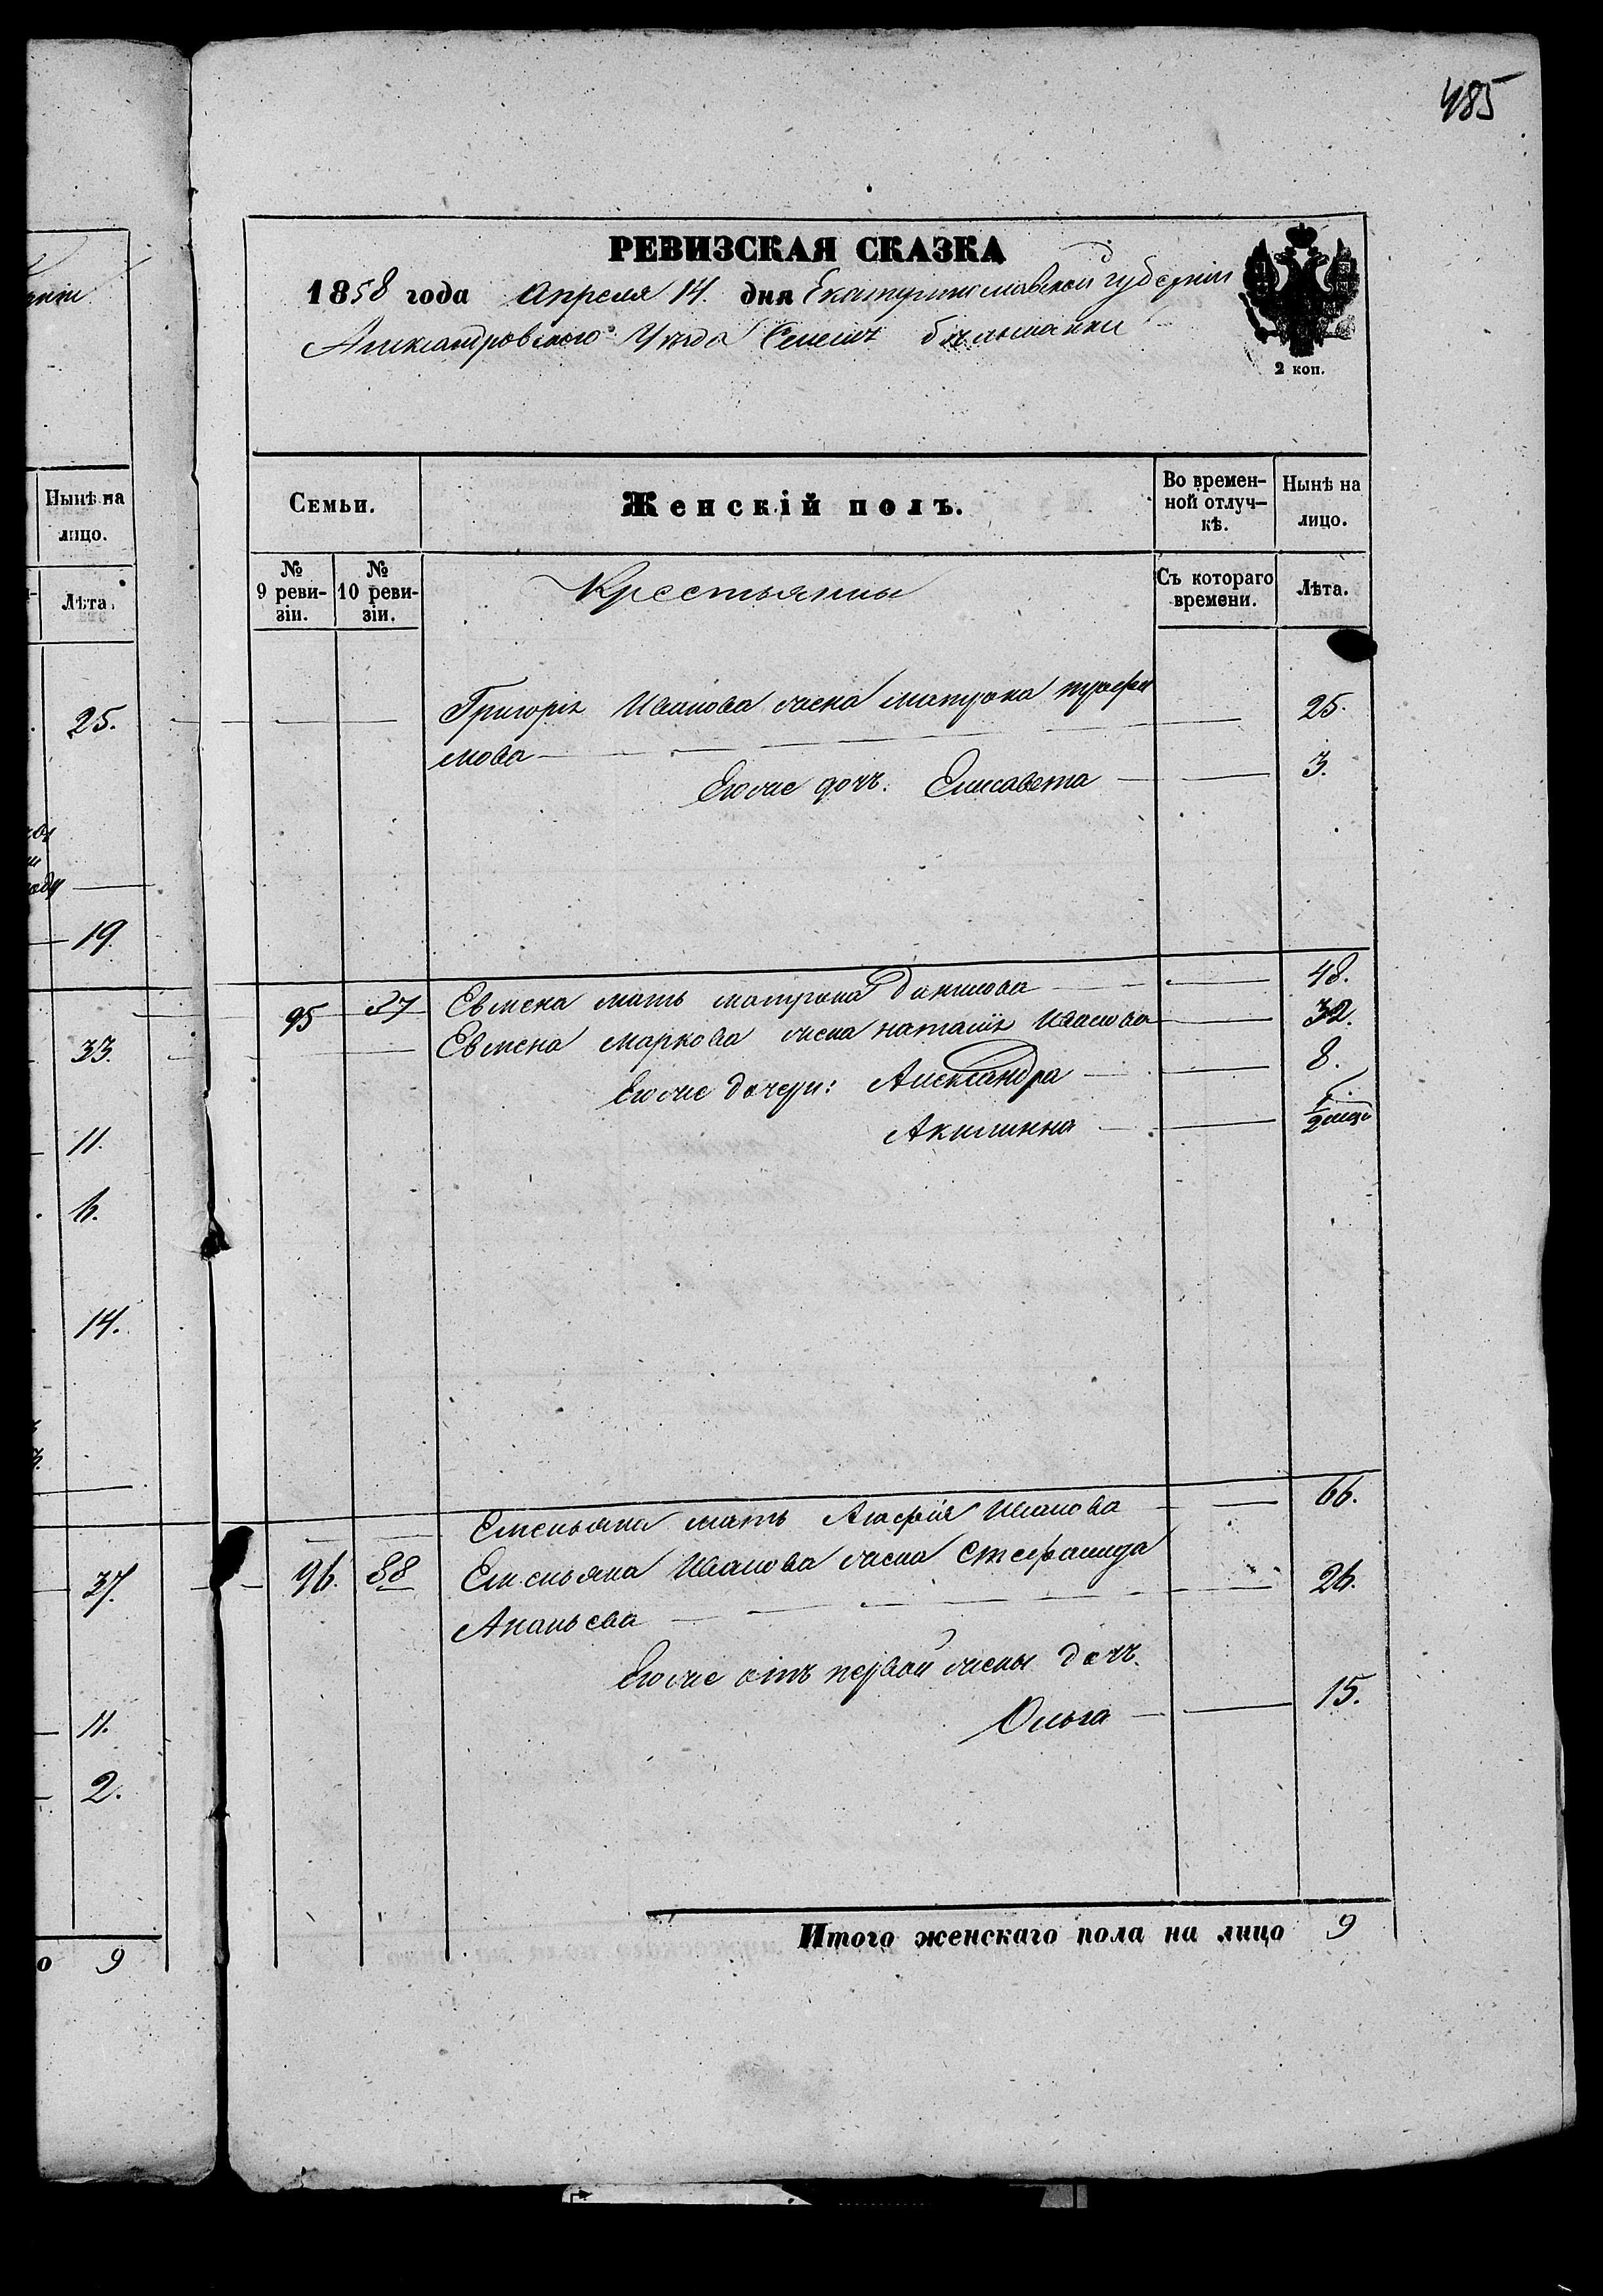 485
РЕВИЗСКАЯ СКАЗКА
1858 года Апреля 14. дня Екатеринославской губернии
Александровского Уѣзда Бѣльманки
2 коп.
Семьи.
Женскій полъ.
Во времен-
ной отлуч-
кѣ.
Нынѣ на
лицо.
№
9 реви-
зіи.
№
10 реви-
зіи.
Крестьяны
Съ котораго
времени.
Лѣта.
Григорія Иванова жена Матрона Трофи 25.
мова
Его же дочь. Елисавета 3.
95 87 Евмена мать Матрона Данилова 48.
Евмена Маркова жена Наталія Иванова 32.
Его же дочери: Александра 8.
Акилинна 1/2 года
Емельяна мать Агафія Иванова 66.
96. 88 Емельяна Иванова жена Стефанида 26.
Ананьева
Его же отъ первой жены дочь.
Ольга 15.
Итого женскаго пола на лицо 9
Нынѣ на
лицо.
Лѣта.
25.
19.
33.
11.
6.
14.
37.
11.
2.
о 9